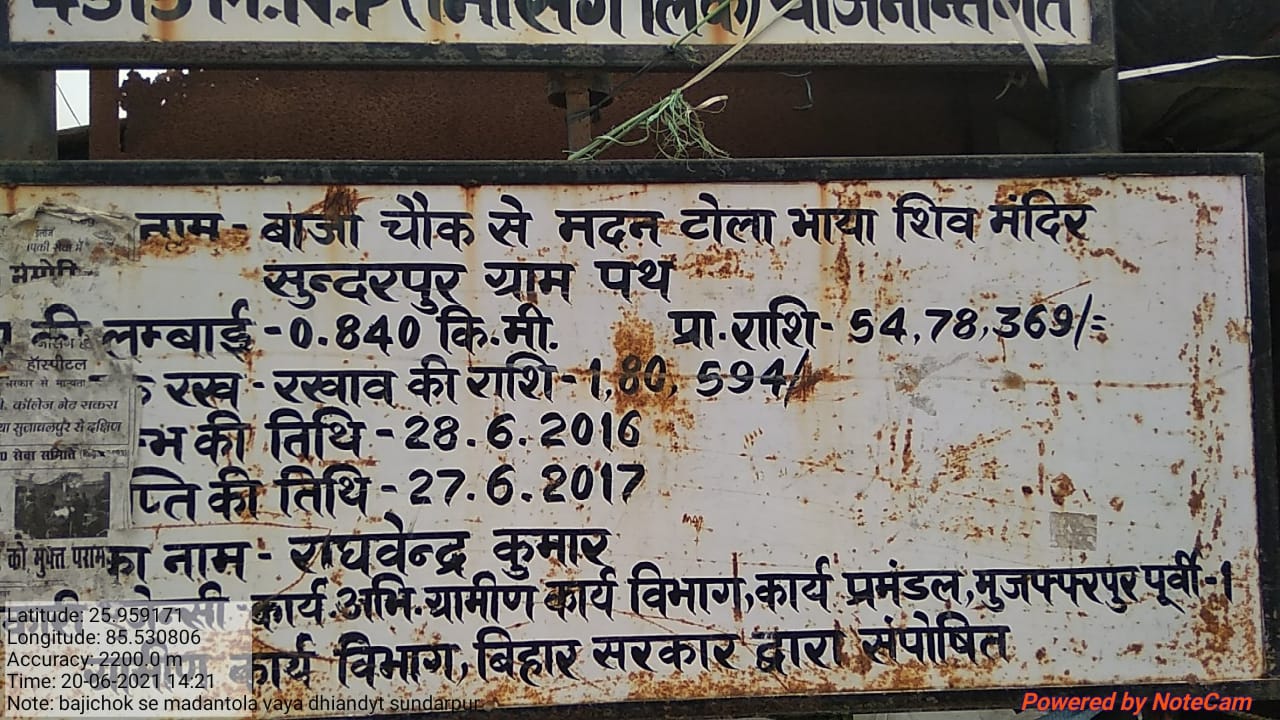 (मिसिंग लिंक) योजनान्तर्गत
नाम - बाजी चौक से मदन टोला भाया शिव मंदिर
सुन्दरपुर ग्राम पथ
की लम्बाई - 0.840 कि.मी. प्रा.राशि - 54,78,369/=
रख - रखाव की राशि - 1,80,594/
की तिथि - 28.6.2016
की तिथि - 27.6.2017
का नाम - राघवेन्द्र कुमार
कार्य.अभि.ग्रामीण कार्य विभाग,कार्य प्रमंडल,मुजफ्फरपुर पूर्वी-1
कार्य विभाग,बिहार सरकार द्वारा संपोषित
हॉस्पीटल
कॉलेज गेट सकरा
से दक्षिण
सेवा समिति
को मुफ्त
Latitude: 25.959171
Longitude: 85.530806
Accuracy: 2200.0 m
Time: 20-06-2021 14:21
Note: bajichok se madantola vaya dhiandyt sundarpur
Powered by NoteCam